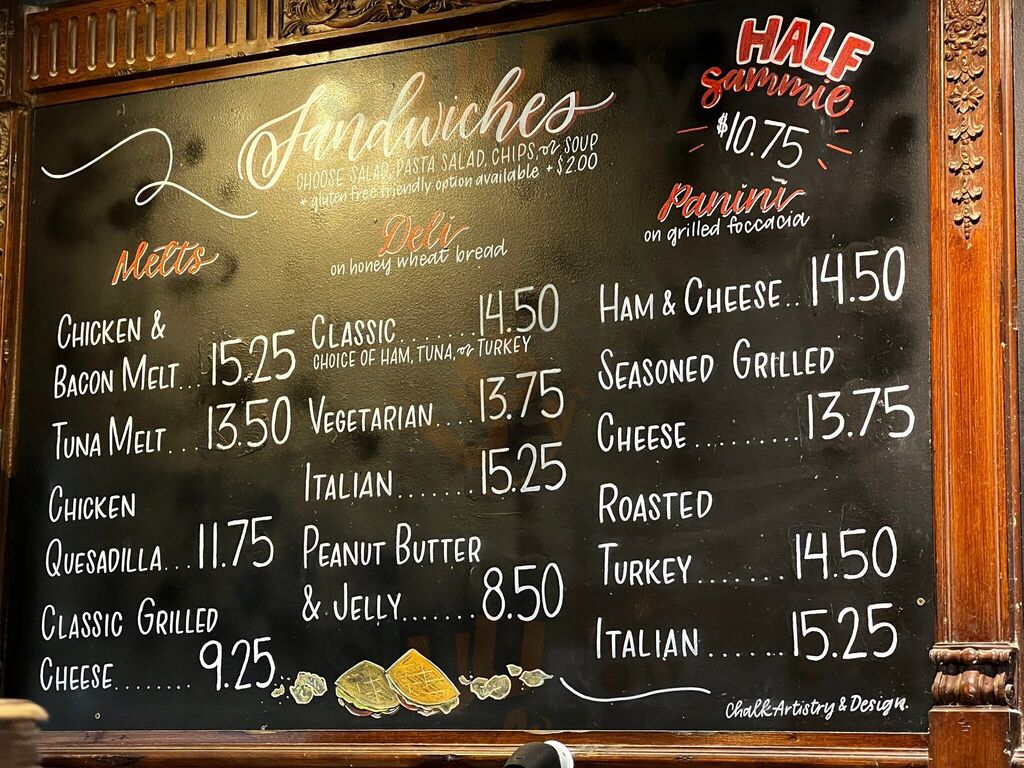 Sandwiches
CHOOSE SALAD, PASTA SALAD, CHIPS, or SOUP
* gluten free friendly option available + $2.00
HALF
Sammie
$10.75
Melts
CHICKEN &
BACON MELT... 15.25
TUNA MELT... 13.50
CHICKEN
QUESADILLA... 11.75
CLASSIC GRILLED
CHEESE........ 9.25
Deli
on honey wheat bread
CLASSIC....... 14.50
CHOICE OF HAM, TUNA, or TURKEY
VEGETARIAN.... 13.75
ITALIAN...... 15.25
PEANUT BUTTER
& JELLY....... 8.50
Panini
on grilled foccacia
HAM & CHEESE.. 14.50
SEASONED GRILLED
CHEESE......... 13.75
ROASTED
TURKEY....... 14.50
ITALIAN ...... 15.25
Chalk Artistry & Design.